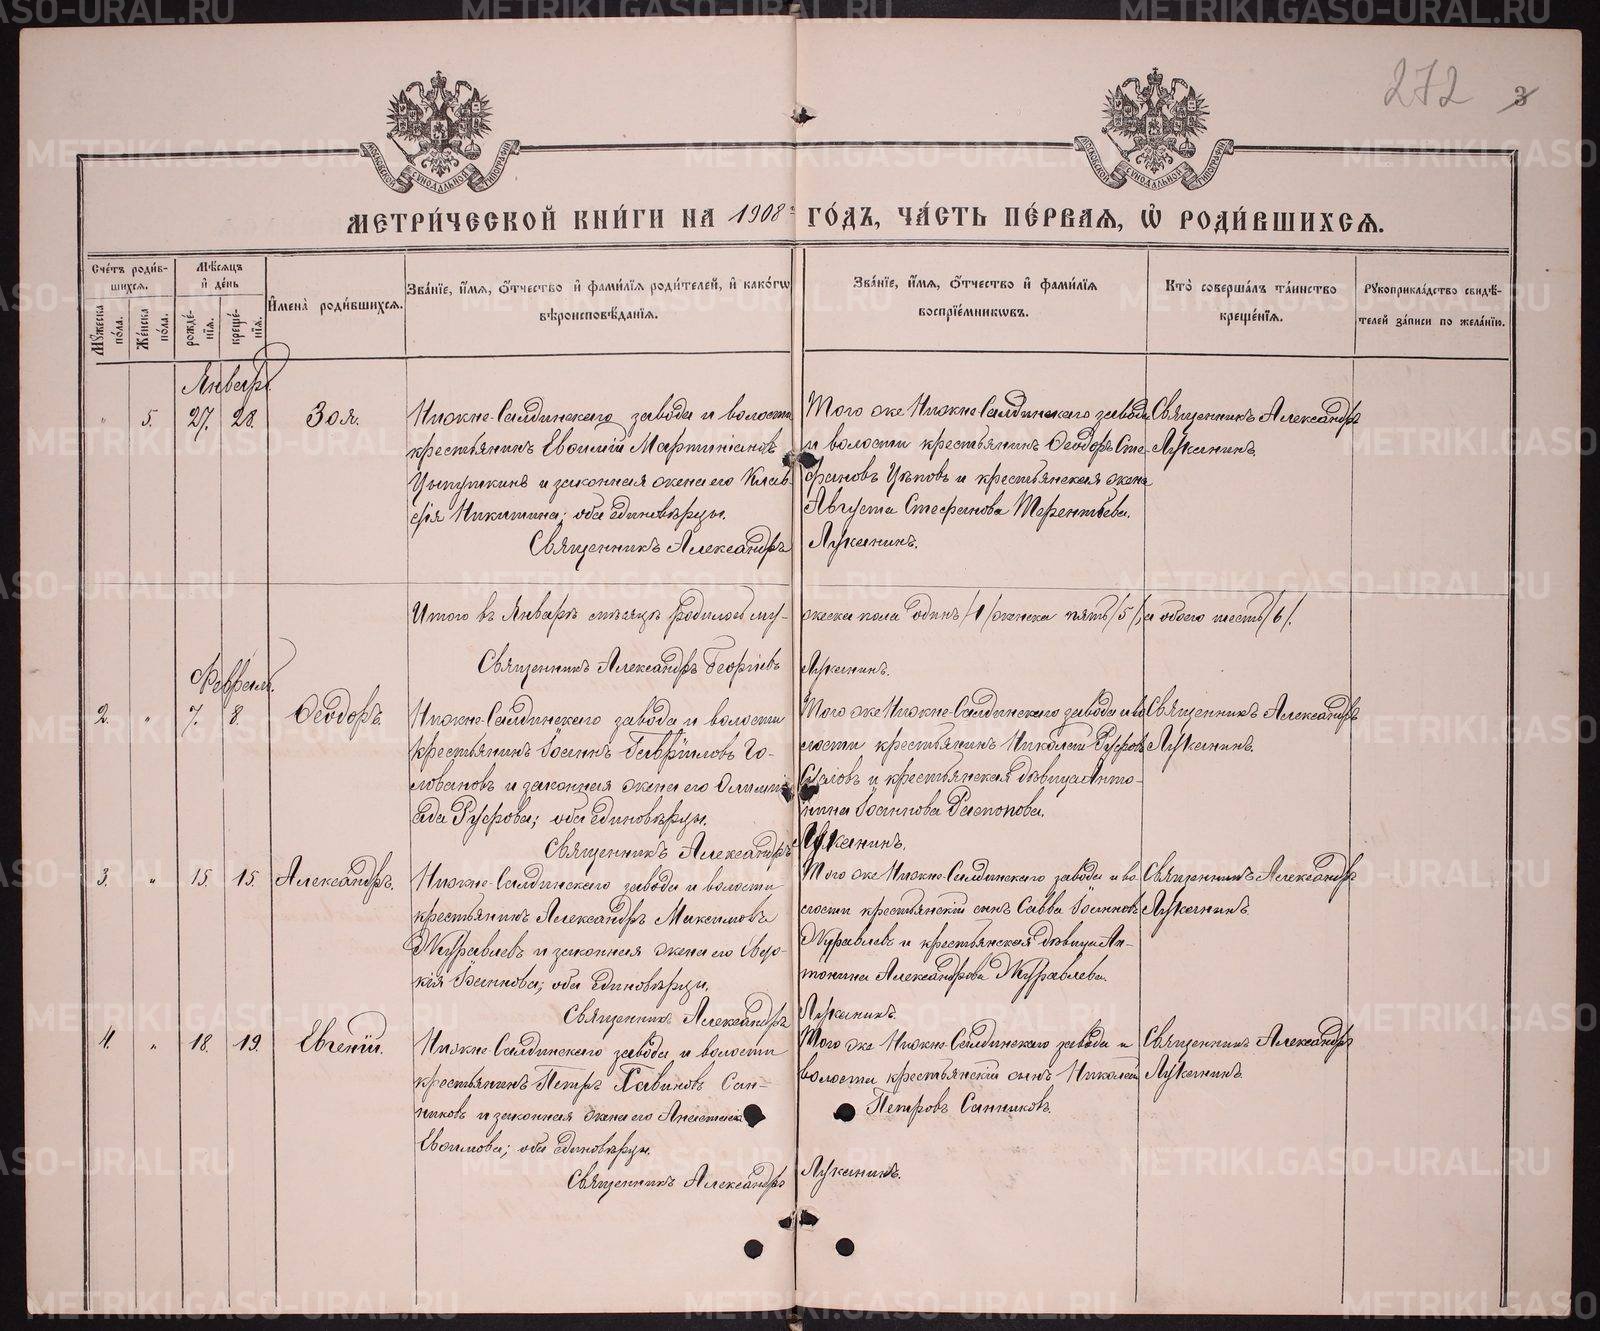 272 3
МЕТРИ́ЧЕСКОЙ КНИ́ГИ НА 1908 г. ГО́ДЪ, ЧА́СТЬ ПЕ́РВАѦ, Ѡ РОДИ́ВШИХСѦ.
Сче́тъ роди́в-
шихсѧ.
Мѣ́сѧцъ
и҆ де́нь
И҆мена̀ роди́вшихсѧ.
Зва́нїе, и҆́мѧ, о҆́тчество и҆ фами́лїѧ роди́телей, и҆ како́гѡ
вѣроисповѣ́данїѧ.
Зва́нїе, и҆́мѧ, о҆́тчество и҆ фами́лїѧ
воспрїе́мниковъ.
Кто̀ соверша́лъ та́инство
креще́нїѧ.
Рꙋкоприкла́дство свидѣ́-
телей за́писи по жела́нїю.
Мꙋ́жеска по́ла.
Же́нска по́ла.
рожде́-нїѧ.
креще́-нїѧ.
Январь.
" 5. 27. 28. Зоя.
Нижне-Салдинскаго завода и волости
крестьянинъ Евѳимій Мартиніановъ
Цыпушкинъ и законная жена его Клав-
дія Никитина; оба единовѣрцы.
Священникъ Александръ Луканинъ.
Того же Нижне-Салдинскаго завода
и волости крестьянинъ Ѳеодоръ Сте-
фановъ Цѣповъ и крестьянская жена
Августа Стефанова Терентьева.
Священникъ Александръ
Луканинъ.
Итого въ Январѣ мѣсяцѣ родилось му-жеска пола одинъ /1/ женска пять /5/, а обоего шесть /6/.
Священникъ Александръ Георгіевъ Луканинъ.
Февраль.
2. " 7. 8. Ѳеодоръ.
Нижне-Салдинскаго завода и волости
крестьянинъ Іоаннъ Гавріиловъ Го-
ловановъ и законная жена его Олимпі-
ада Руфова; оба единовѣрцы.
Священникъ Александръ Луканинъ.
Того же Нижне-Салдинскаго завода и во-
лости крестьянинъ Николай Руфовъ
и крестьянская дѣвица Анто-
нина Іоаннова Распопова.
Священникъ Александръ
Луканинъ.
3. " 15. 15. Александръ.
Нижне-Салдинскаго завода и волости
крестьянинъ Александръ Максимовъ
Журавлевъ и законная жена его Евдо-
кія Іоаннова; оба единовѣрцы.
Священникъ Александръ Луканинъ
Того же Нижне-Салдинскаго завода и во-
лости крестьянскій сынъ Савва Іоанновъ
Журавлевъ и крестьянская дѣвица Ан-
тонина Александрова Журавлева.
Священникъ Александръ
Луканинъ.
4. " 18. 19. Евгеній.
Нижне-Салдинскаго завода и волости
крестьянинъ Петръ Савиновъ Сан-
никовъ и законная жена его Анастасія
Евѳимова; оба единовѣрцы.
Священникъ Александръ Луканинъ.
Того же Нижне-Салдинскаго завода и
волости крестьянскій сынъ Николай
Петровъ Санниковъ.
Священникъ Александръ
Луканинъ.
METRIKI.GASO-URAL.RU